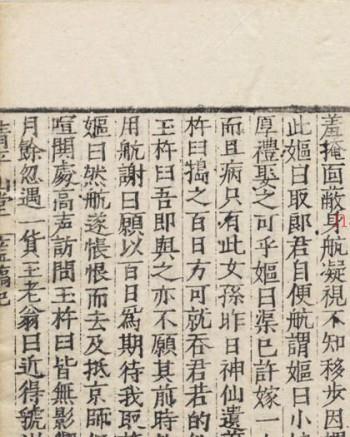 羞掩面蔽身航凝視不知移步因
此嫗曰取郎君自便航謂嫗曰小
厚禮娶之可乎嫗曰渠已許嫁一
而且病只有此女孫昨日神仙遺
杵曰搗之百日方可就吞君若的
玉杵曰吾即與之亦不願其前時
用航謝曰願以百日為期待我取
嫗曰然航遂悵恨而去及抵京師
喧閧處高声訪問玉杵曰皆無影
月餘忽遇一貨玉老翁曰近得虢
清平山堂